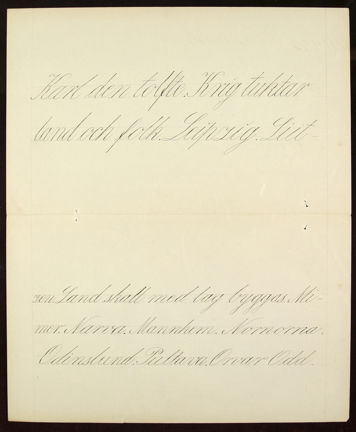 Karl den tolfte. Krig tuktar
land och folk. Leipzig. Lüt-
zen. Land skall med lag byggas. Mi-
mer. Narva. Mannhem. Nornorna.
Odenslund. Pultava. Orvar Odd.